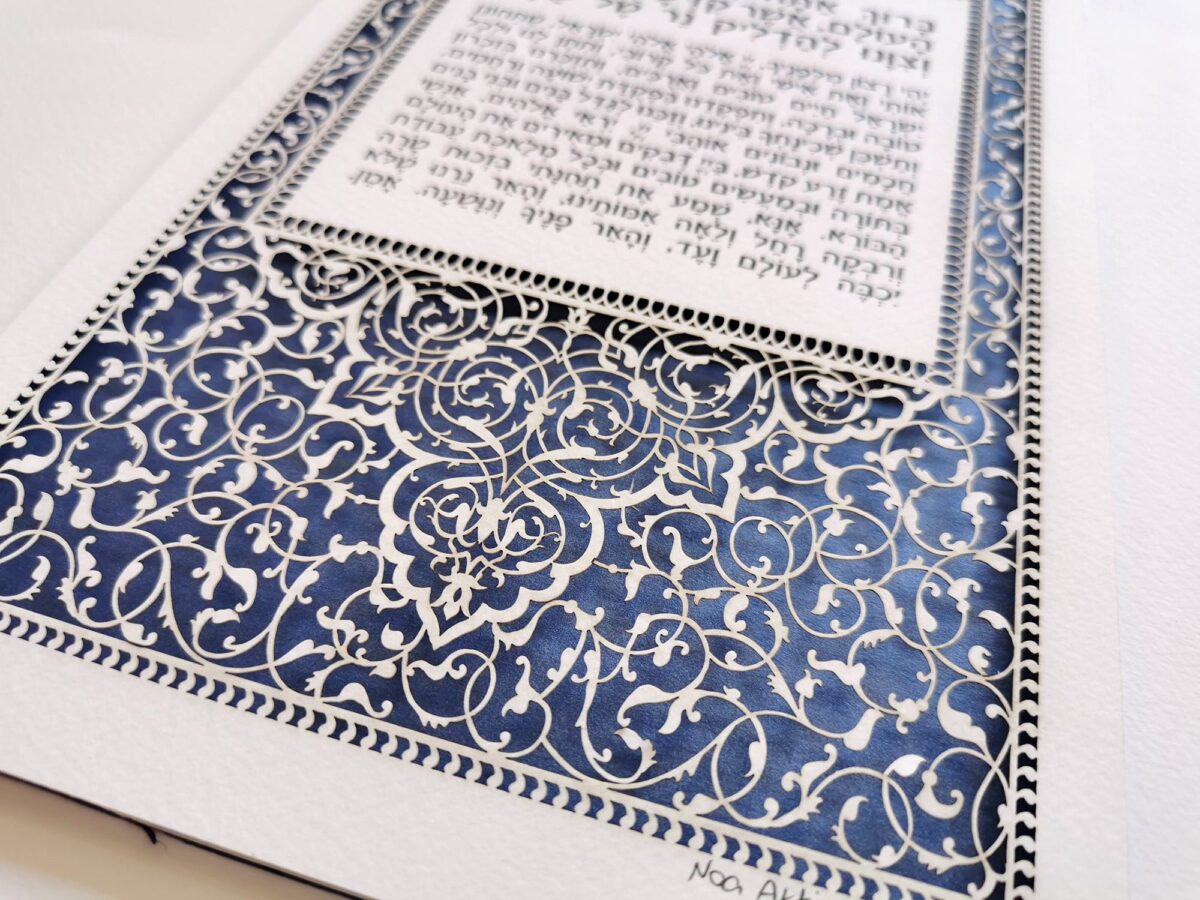 בָּרוּךְ
הָעוֹלָם אֲשֶׁר
וְצִוָּנוּ לְהַדְלִיק נֵר שֶׁל
יְהִי רָצוֹן מִלְּפָנֶיךָ, יְיָ אֱלֹהַי אֱלֹהֵי יִשְׂרָאֵל, שֶׁתְּחוֹנֵן
אוֹתִי וְאֶת אִישִׁי וְאֶת כָּל קְרוֹבַי, וְתִתֶּן לָנוּ וּלְכָל
יִשְׂרָאֵל חַיִּים טוֹבִים וַאֲרֻכִּים, וְתִזְכְּרֵנוּ בְּזִכְרוֹן
טוֹבָה וּבְרָכָה, וְתִפְקְדֵנוּ בִּפְקֻדַּת יְשׁוּעָה וְרַחֲמִים
וְתַשְׁכֵּן שְׁכִינָתְךָ בֵּינֵינוּ, וְזַכֵּנוּ לְגַדֵּל בָּנִים וּבְנֵי בָנִים
חֲכָמִים וּנְבוֹנִים, אוֹהֲבֵי יְיָ, יִרְאֵי אֱלֹהִים, אַנְשֵׁי
אֱמֶת זֶרַע קֹדֶשׁ, בַּיְיָ דְּבֵקִים וּמְאִירִים אֶת הָעוֹלָם
בְּתוֹרָה וּבְמַעֲשִׂים טוֹבִים וּבְכָל מְלֶאכֶת עֲבוֹדַת
הַבּוֹרֵא. אָנָּא, שְׁמַע אֶת תְּחִנָּתִי בִּזְכוּת שָׂרָה
וְרִבְקָה רָחֵל וְלֵאָה אִמּוֹתֵינוּ, וְהָאֵר נֵרֵנוּ שֶׁלֹּא
יִכְבֶּה לְעוֹלָם וָעֶד, וְהָאֵר פָּנֶיךָ וְנִוָּשֵׁעָה. אָמֵן.
Noa